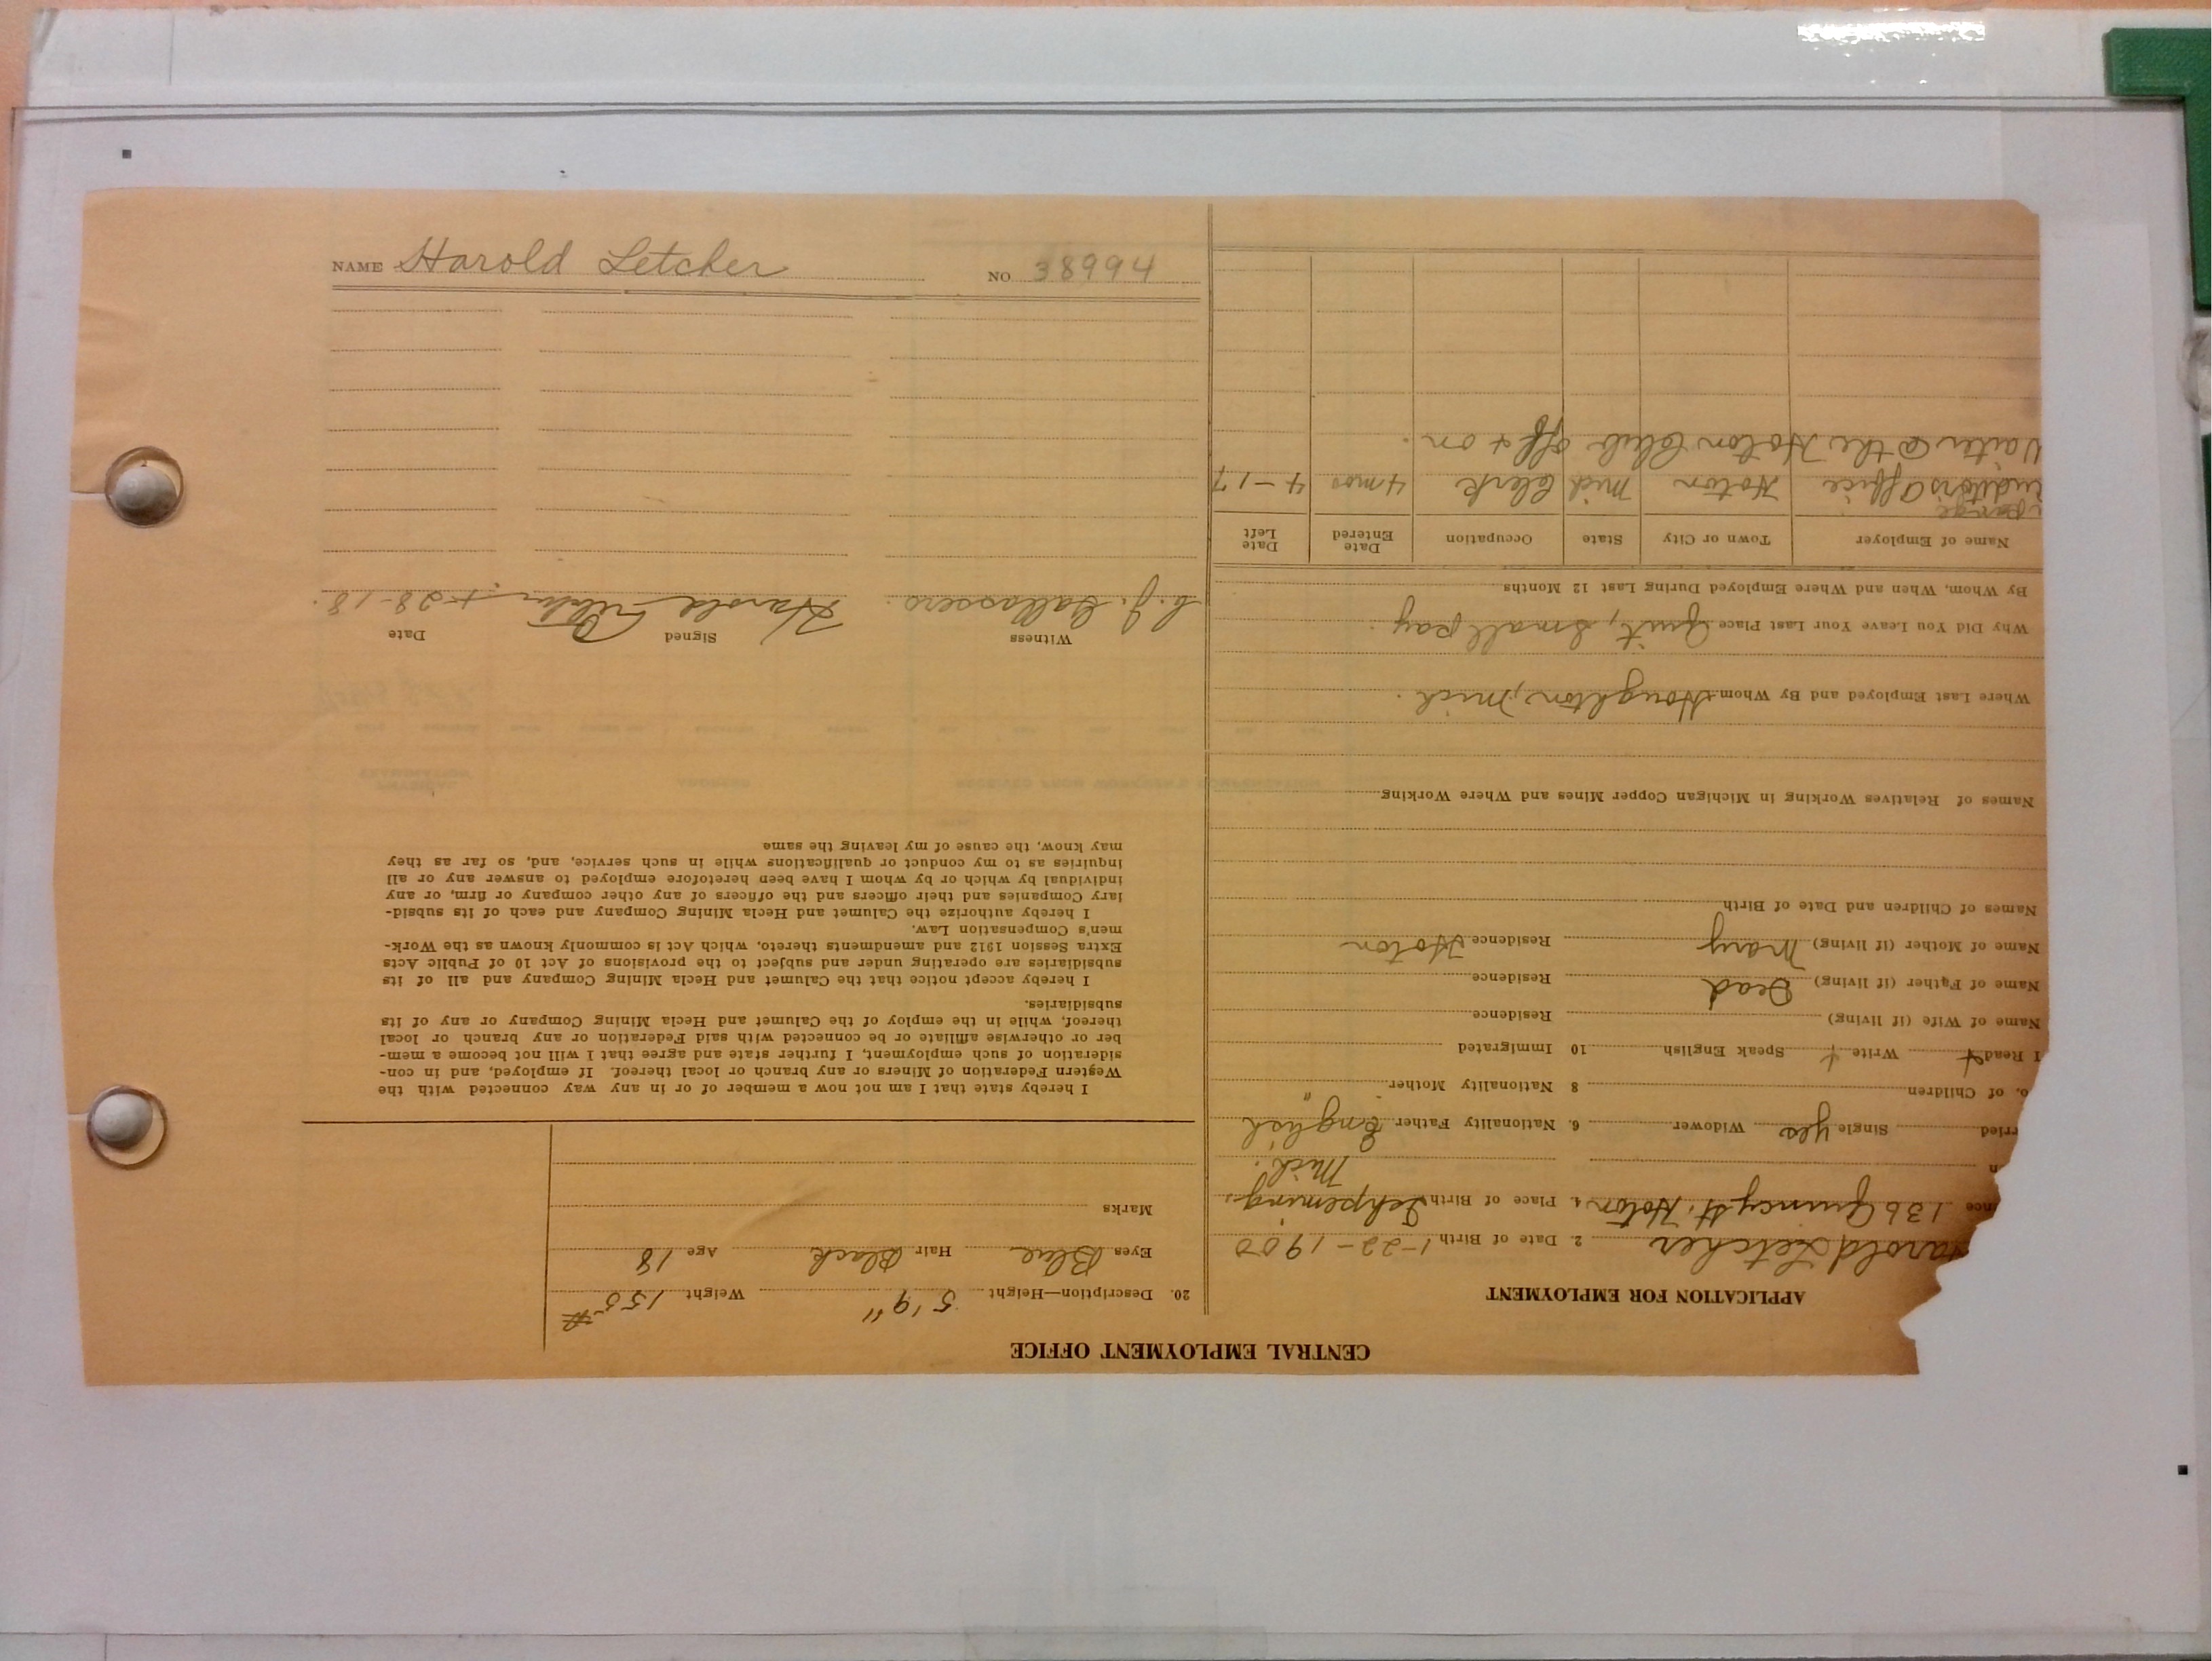 NAME Harold Letcher NO 38994
CENTRAL EMPLOYMENT OFFICE
APPLICATION FOR EMPLOYMENT
arold Letcher 2. Date of Birth 1-22-1900
nce 136 Quincy St. Hoton 4. Place of Birth Ishpeming,
Mich.
n
rried Single yes Widower 6. Nationality Father English
o. of Children 8 Nationality Mother "
I Read + Write + Speak English 10 Immigrated
Name of Wife (if living) Residence
Name of Father (if living) Dead Residence
Name of Mother (if living) Mary Residence Hoton
Names of Children and Date of Birth
Names of Relatives Working in Michigan Copper Mines and Where Working
Where Last Employed and By Whom Houghton, Mich.
Why Did You Leave Your Last Place Quit, small pay.
By Whom, When and Where Employed During Last 12 Months
Name of Employer Town or City State Occupation Date Entered Date Left
uditors Office Hoton Mich Clerk 4 mos 4-17
Waiter @ the Hoton Club off + on.
20. Description—Height 5'9" Weight 155#
Eyes Blue Hair Black Age 18
Marks
I hereby state that I am not now a member of or in any way connected with the
Western Federation of Miners or any branch or local thereof. If employed, and in con-
sideration of such employment, I further state and agree that I will not become a mem-
ber or otherwise affiliate or be connected with said Federation or any branch or local
thereof, while in the employ of the Calumet and Hecla Mining Company or any of its
subsidiaries.
I hereby accept notice that the Calumet and Hecla Mining Company and all of its
subsidiaries are operating under and subject to the provisions of Act 10 of Public Acts
Extra Session 1912 and amendments thereto, which Act is commonly known as the Work-
men's Compensation Law.
I hereby authorize the Calumet and Hecla Mining Company and each of its subsid-
iary Companies and their officers and the officers of any other company or firm, or any
individual by which or by whom I have been heretofore employed to answer any or all
inquiries as to my conduct or qualifications while in such service, and, so far as they
may know, the cause of my leaving the same
Witness Signed Date
Harold Letcher 28-18.